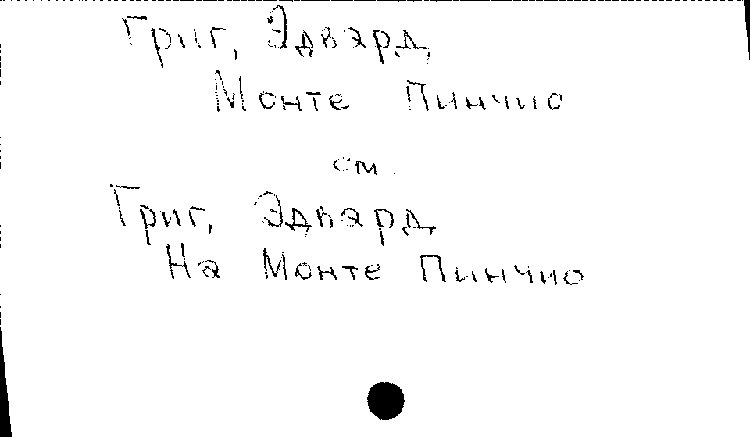 Григ, Эдвард,
Монте Пинчио
см.
Григ, Эдвард,
На Монте Пинчио